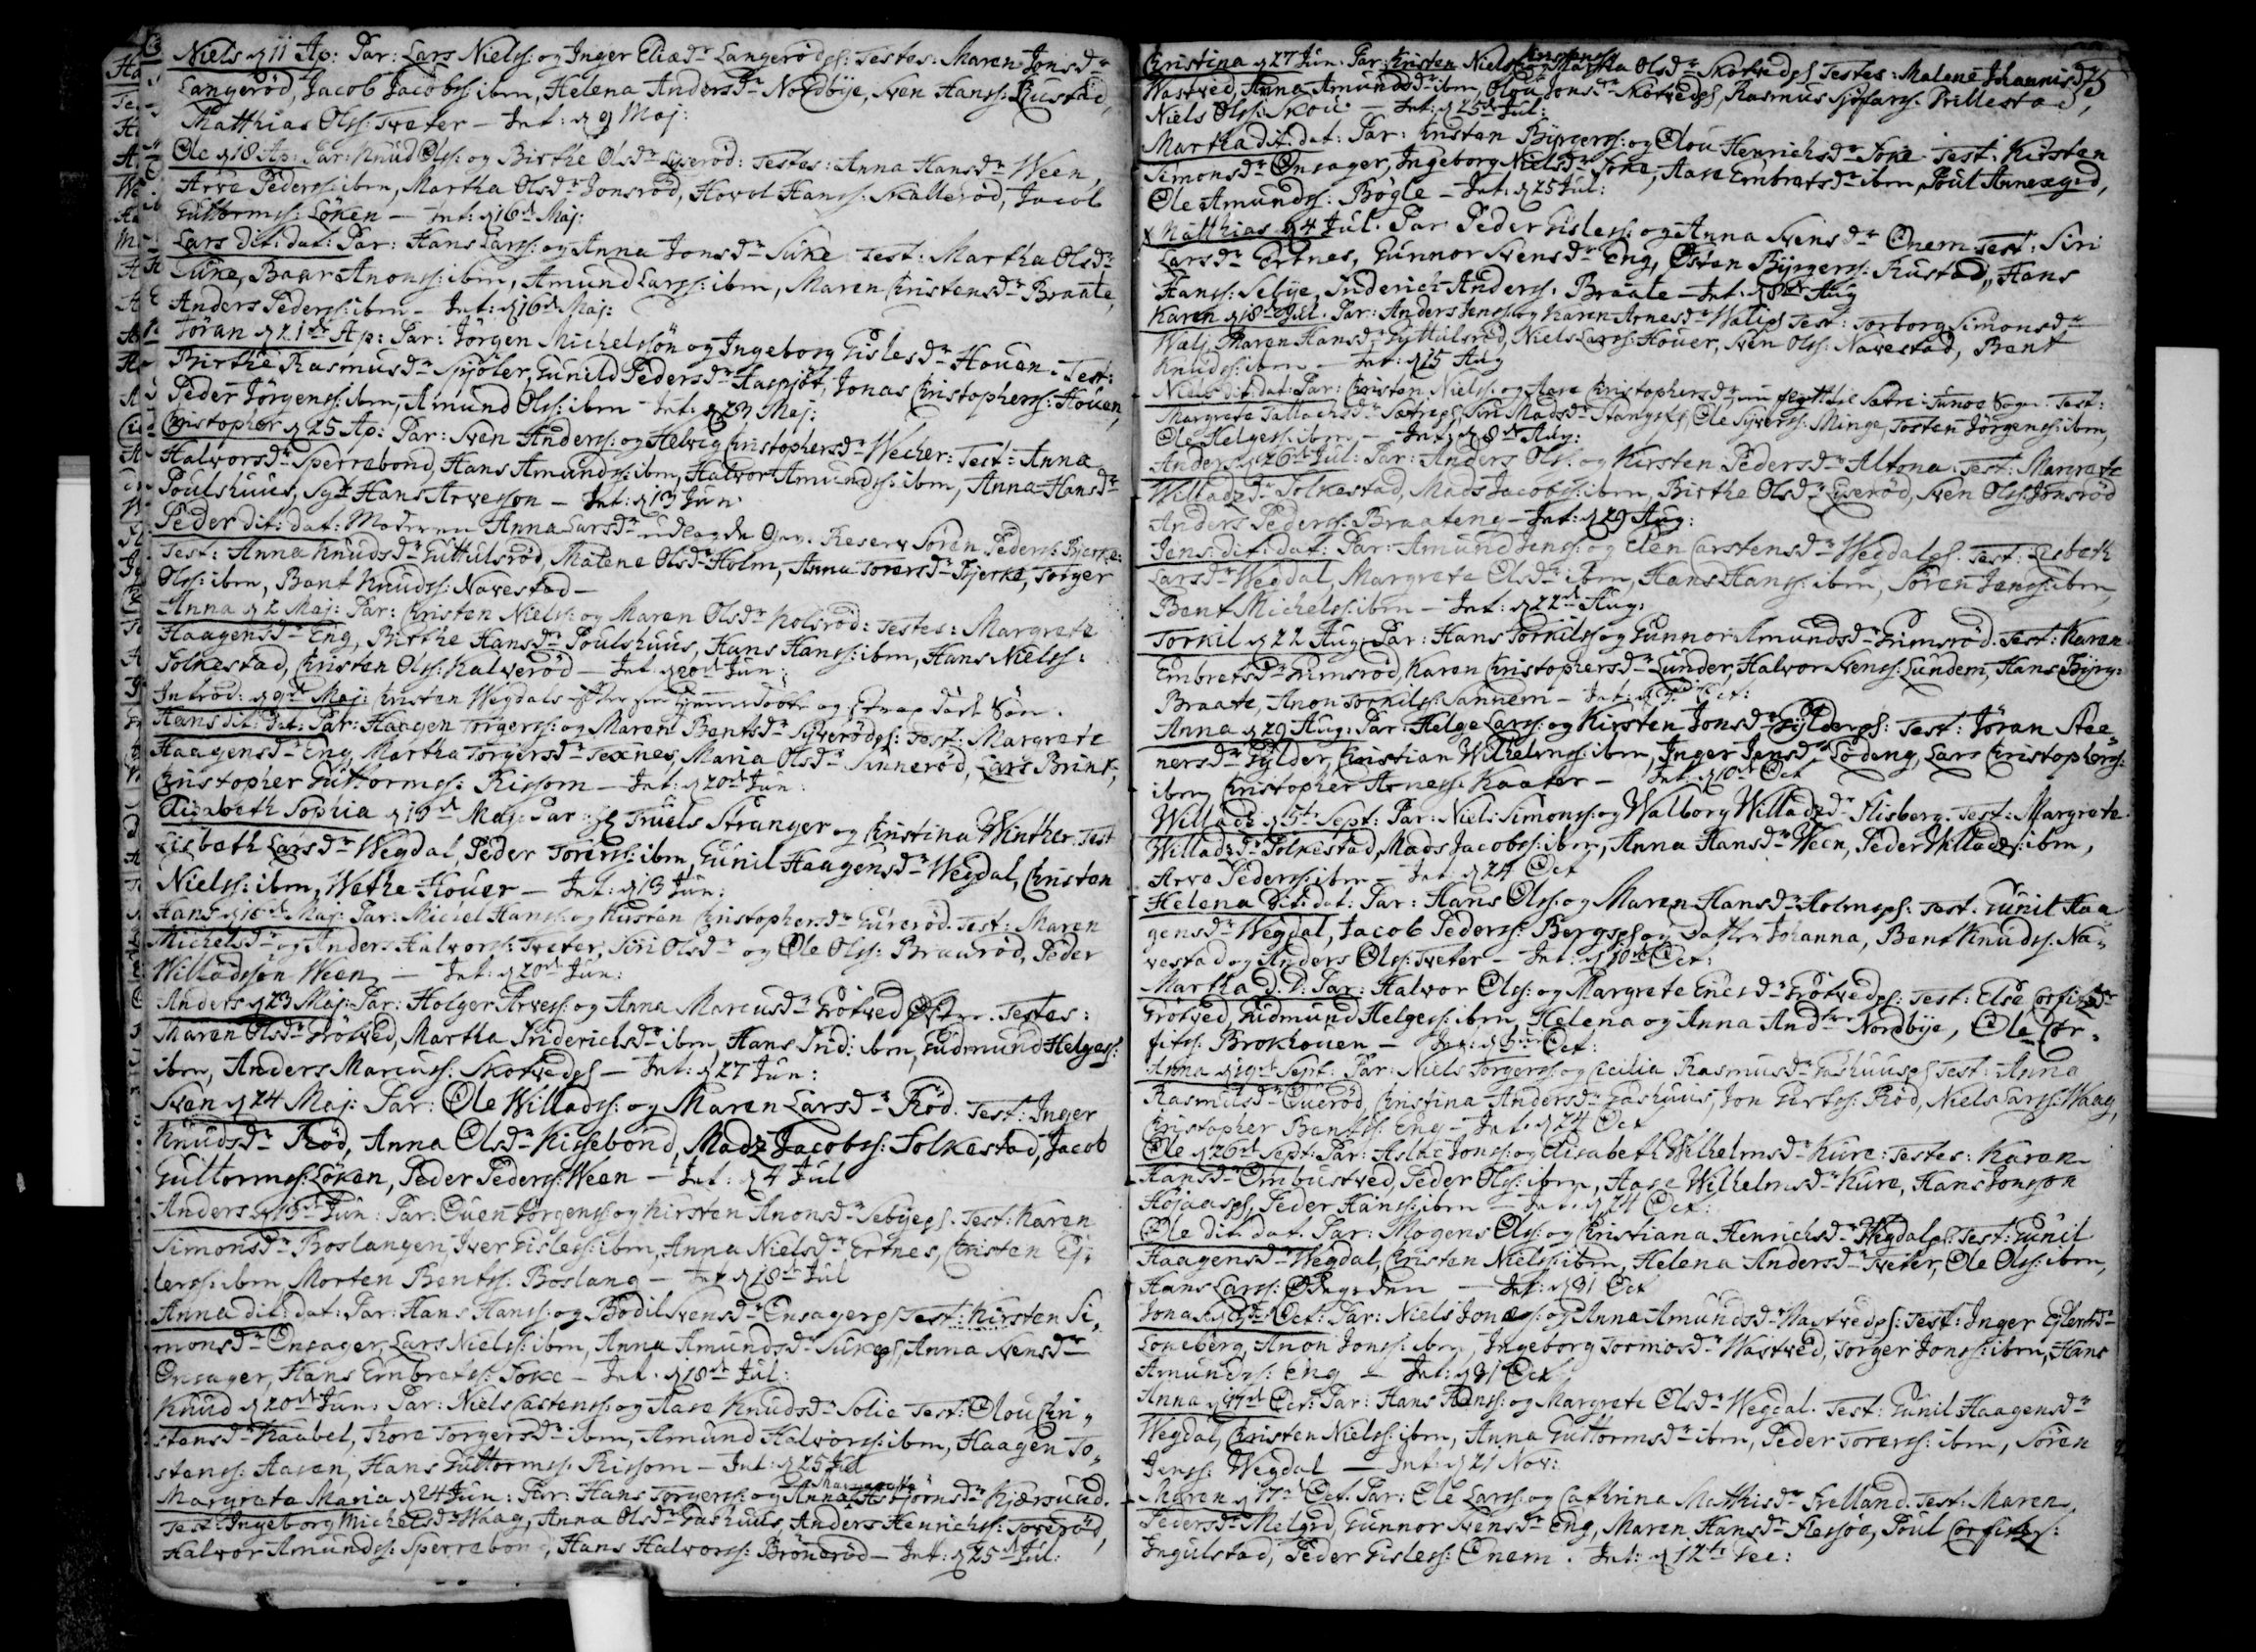 Niels d 11 Ap: Par: Lars Nielss: og Inger Eliæd:r Langerödps: Testes: Maren Jonsd:r
Langeröd, Jacob Jacobss: ibm, Helena Andersd:r Nordbye, Sven Hanss: Bustad,
Matthias Olss: Tveter – Int: d 9 Maj:
Ole d 18 Ap: Par: Knud Olss: og Birthe Olsd:r Lyseröd: Testes: Anna Hansd:r Ween,
Arve Pederss: ibm, Martha Olsd:r Jonsröd, Hovol Hanss: Skalleröd, Jacob
Guttormss: Löken – Int: d 16:d Maj:
Lars dit: dat: Par: Hans Larss: og Anna Jonsd:r Tune Test: Martha Olsd:r
Tune, Baar Anonss: ibm, Amund Larss: ibm, Maren Christensd:r Braate,
Anders Pederss: ibm – Int: d 16:d Maj:
Jöran d 21:de Ap: Par: Jörgen Michelssön og Ingeborg Gislesd:r Houen. Test:
Birthe Rasmusd:r Spjöler, Gunild Pedersd:r Haspjöt, Jonas Christopherss: Houen,
Peder Jörgenss: ibm, Amund Olss: ibm Int: d 23 Maj:
Christopher d 25 Ap: Par: Sven Anderss: og Helvig Christophersd:r Wecher: Test: Anna
Halvorsd:r Sperrebond, Hans Amundss: ibm, Halvor Amundss: ibm, Anna Hansd:r
Poulshuus, Sgt Hans Arvesson – Int: d 13 Jun:
Peder dit: dat: Moderen Anna Larsd:r udlagde Gev. Reserv Sören Pederss: Bjerke:
Test: Anna Knudsd:r Guttulsröd, Malene Olsd:r Holm, Anna Toresd:r Bjerke, Torger
Olss: ibm, Bent Knudss: Navestad –
Anna d 2 Maj: Par: Christen Nielss: og Maren Olsd:r Kolsröd: Testes: Margrete
Haagensd:r Eng, Birthe Hansd:r Poulshuus, Hans Hanss: ibm, Hans Nielss:
Solkestad, Christen Olss: Kalveröd – Int: d 20:d Jun:
Introd: d 9:d Maj: Christen Wegdals
Hans dit: dat: Par: Haagen Torgerss: og Maren Bentsd:r Syverödps: Test: Margrete
Haagensd:r Eng, Martha Torgersd:r Texnes, Maria Olsd:r Sunneröd, Lars Brink,
Christopher Guttormss: Rissom – Int: d 20:d Jun:
Elizabeth Sophia d 13:d Maj: Par: Hr Truels Stranger og Christina Winther. Test
Lisbeth Larsd:r Wegdal, Peder Torerss: ibm, Gunil Haagensd:r Wegdal, Christen
Nielss: ibm, Wethe Houer – Int: d 13 Jun:
Hans d 16:d Maj: Par: Michel Hanss: og Kirsten Christophersd:r Gureröd. Test: Maren
Michelsd:r og Anders Halvorss: Tveter, Siri Olsd:r og Ole Olss: Braaröd, Peder
Willadssön Ween – Int: d 20:d Jun:
Anders d 23 Maj: Par: Holger Arvess: og Anna Marcusd:r Grötved Testes:
Maren Olsd:r Grötved, Martha Friderichsd:r ibm, Hans Frid: ibm, Gudmund Helgess:
ibm, Anders Marcuss: Skotvedps – Int: d 27 Jun:
Sven d 24 Maj: Par: Ole Willadss: og Maren Larsd:r Röd. Test: Inger
Knudsd:r Röd, Anna Olsd:r Kissebond, Madz Jacobss: Solkestad, Jacob
Guttormss: Löken, Peder Pederss: Ween – Int: d 4 Jul
Anders d 13:d Jun: Par: Ouen Jörgenss: og Kirsten Anonsd:r Sebyeps. Test: Karen
Simonsd:r Boslangen, Iver Gisless: ibm, Anna Nielsd:r Ertnes, Christen Ej,
lerss: ibm Morten Bentss: Boslang – Int d 18:d Jul
Anna dit: dat: Par: Hans Hanss: og Bodil Svensd:r Onsagerps Test: Kirsten Si,
monsd:r Onsager, Lars Nielss: ibm, Anna Amundsd:r Tuneps, Anna Svensd:r
Onsager, Hans Embretss: Toke – Int. d 18:d Jul:
Knud d 20:d Jun: Par: Niels Castenss: og Aase Knudsd:r Solie Test: Olou Chri,
stensd:r Kaabel, Thore Torgersd:r ibm, Amund Halvorss: ibm, Haagen To,
stenss: Aasen, Hans Guttormss: Rissom – Int: d 25 Jul
Margreta Maria d 24 Jun: Par: Hans Torgerss: og Anna Margrethe Asbjörnsd:r Kjærsund.
Test: Ingeborg Michelsd:r Waag, Anna Olsd:r Gashuus, Anders Henrichss: Toveröd,
Halvor Amundss: Sperrebond, Hans Halvorss: Brönderöd – Int: d 25:d Jul:
Christina d 27 Jun. Par: Christen Nielss: og Martha Olsd:r Skotvedps Testes: Malene Johannisd:r
Wastved, Anna Amundsd:r ibm, Olou Jonsd:r Skotvedps, Rasmus Sjofarss: Prillestad,
Niels Olss: Skou. – Int: d 25:d Jul:
Martha dit: dat: Par: Christen Byrgerss: og Olou Henrichsd:r Toke. Test: Kirsten
Simonsd:r Onsager, Ingeborg Nielsd:r Toke, Aase Embretsd:r ibm, Poul Annexgrd,
Ole Amundss: Bögle – Int: d 25 Jul:
x Matthias d 4 Jul. Par Peder Gisless: og Anna Svensd:r Onem. Test: Siri
Larsd:r Ertnes, Gunnor Svensd:r Eng, Östen Byrgerss: Rustad, Hans
Hanss: Sebye, Friderich Anderss: Braate – Int: d 8:de Aug
Karen d 18:de Jul. Par: Anders Jenss: og Karen Arnesd:r Walips Test: Torborg Simonsd:r
Walj, Maren Hansd:r Guttulsröd, Niels Larss: Houer, Sven Olss: Navestad, Bent
Knudss: ibm – Int: d 15 Aug
Niels dit: dat: Par: Christen Nielss: og Aase Christophersd:r Sætre: Tunøe Sogn. Test:
Margrete Tallachsd:r Sætreps, Siri Madsd:r Stangps, Ole Syverss: Minge, Tosten Jörgenss: ibm,
Ole Helgess: ibm – Int: d 8:d Aug:
Anders d 26:d Jul: Par: Anders Olss: og Kirsten Pedersd:r Altona: Test: Margrete
Willadzd:r Solkestad, Mads Jacobss: ibm, Birthe Olsd:r Lyseröd, Sven Olss: Jonsröd
Anders Pederss: Braateng – Int: d 29 Aug:
Jens: dit: dat: Par: Amund Jenss: og Elen Carstensd:r Wegdalps. Test: Lisbeth
Larsd:r Wegdal, Margrete Olsd:r ibm, Hans Hanss: ibm, Sören Jenss: ibm,
Bent Michelss: ibm – Int: d 22:d Aug:
Torkil d 22 Aug: Par: Hans Torkilss: og Gunnor Amundsd:r Grimsröd. Test: Karen
Embretsd:r Grimsröd, Karen Christophersd:r Gunder, Halvor Svenss: Gundem, Hans Byrg:
Braate, Anon Torkilss: Sannem – Int: d 3:d Oct:
Anna d 29 Aug: Par: Helge Larss: og Kirsten Jonsd:r Gylderps: Test: Jöran Stee,
nersd:r Gylder, Christian Wilhelmss: ibm, Inger Jensd:r Lödeng, Lars Christopherss:
ibm, Christopher Arness: Kaater – Int: d 10:d Oct
Willads d 5:t Sept: Par: Niels Simonss: og Walborg Willadzd:r Flisberg. Test: Margrete
Willadzd:r Solkestad, Mads Jacobss: ibm, Anna Hansd:r Ween, Peder Willadzs: ibm,
Arve Pederss: ibm – Int: d 24 Oct
Helena Dit: dat: Par: Hans Olss: og Maren Hansd:r Holmsps: Test: Gunil Haa
gensd:r Wegdal, Jacob Pederss: Bergsps og Datter Johanna, Bent Knudss: Na,
vestad og Anders Olss: Tveter – Int: d 10:d Oct:
Martha d. d: Par: Halvor Olss: og Margrete Ericsd:r Grötvedps: Test: Else Corfizd:r
Grötved, Gudmund Helgess: ibm, Helena og Anna And:s Nordbye, Ole Cor,
fitss. Brokhouen – Int: d 3:d Oct:
Anna d 19:d Sept: Par: Niels Torgerss: og Cecilia Rasmusd:r Gashuusps Test: Anna
Rasmusd:r Oueröd, Christina Andersd:r Gashuus, Jon Gutorss: Röd, Niels Larss: Waag,
Christopher Bentss: Eng – Int. d 24 Oct
Ole d 26:d Sept: Par: Aslac Jonss: og Elisabeth Wilhelmsd:r Kure: Testes: Karen
Hansd:r Ombustved, Peder Olss: ibm, Aase Wilhelmsd:r Kure, Hans Jonsson
Höjaasps, Peder Hanss: ibm – Int. d 24 Oct:
Ole dit. dat. Par: Mogens Olss: og Christiana Henrichsd:r Wegdalps. Test: Gunil
Haagensd:r Wegdal, Christen Nielss: ibm, Helena Andersd:r Tveter, Ole Olss: ibm,
Hans Larss: Ödegrden – Int: d 31 Oct
Jonas d 3:d Oct: Par: Niels Jonæss: og Anna Amundsd:r Wastvedps: Test: Inger Eylertsd:r
Loneberg, Anon Jonss: ibm, Ingeborg Tormosd:r Wastved, Torger Jonss: ibm, Hans
Amundss: Eng – Int: d 31 Oct
Anna d 17:d Oct: Par: Hans Hanss: og Margrete Olsd:r Wegdal. Test: Gunil Haagensd:r
Wegdal, Christen Nielss: ibm, Anna Guttormsd:r ibm, Peder Torerss: ibm, Sören
Jenss: Wegdal – Int: d 21 Nov:
Maren d 17:d Oct. Par: Ole Larss: og Cathrina Matthisd:r Frelland. Test: Maren
Pedersd:r Melgrd, Gunnor Svensd:r Eng, Maren Hansd:r Flessöe, Poul Corfitzs:
Ingulstad, Peder Gisless: Onem. Int: d 12:te Dec: